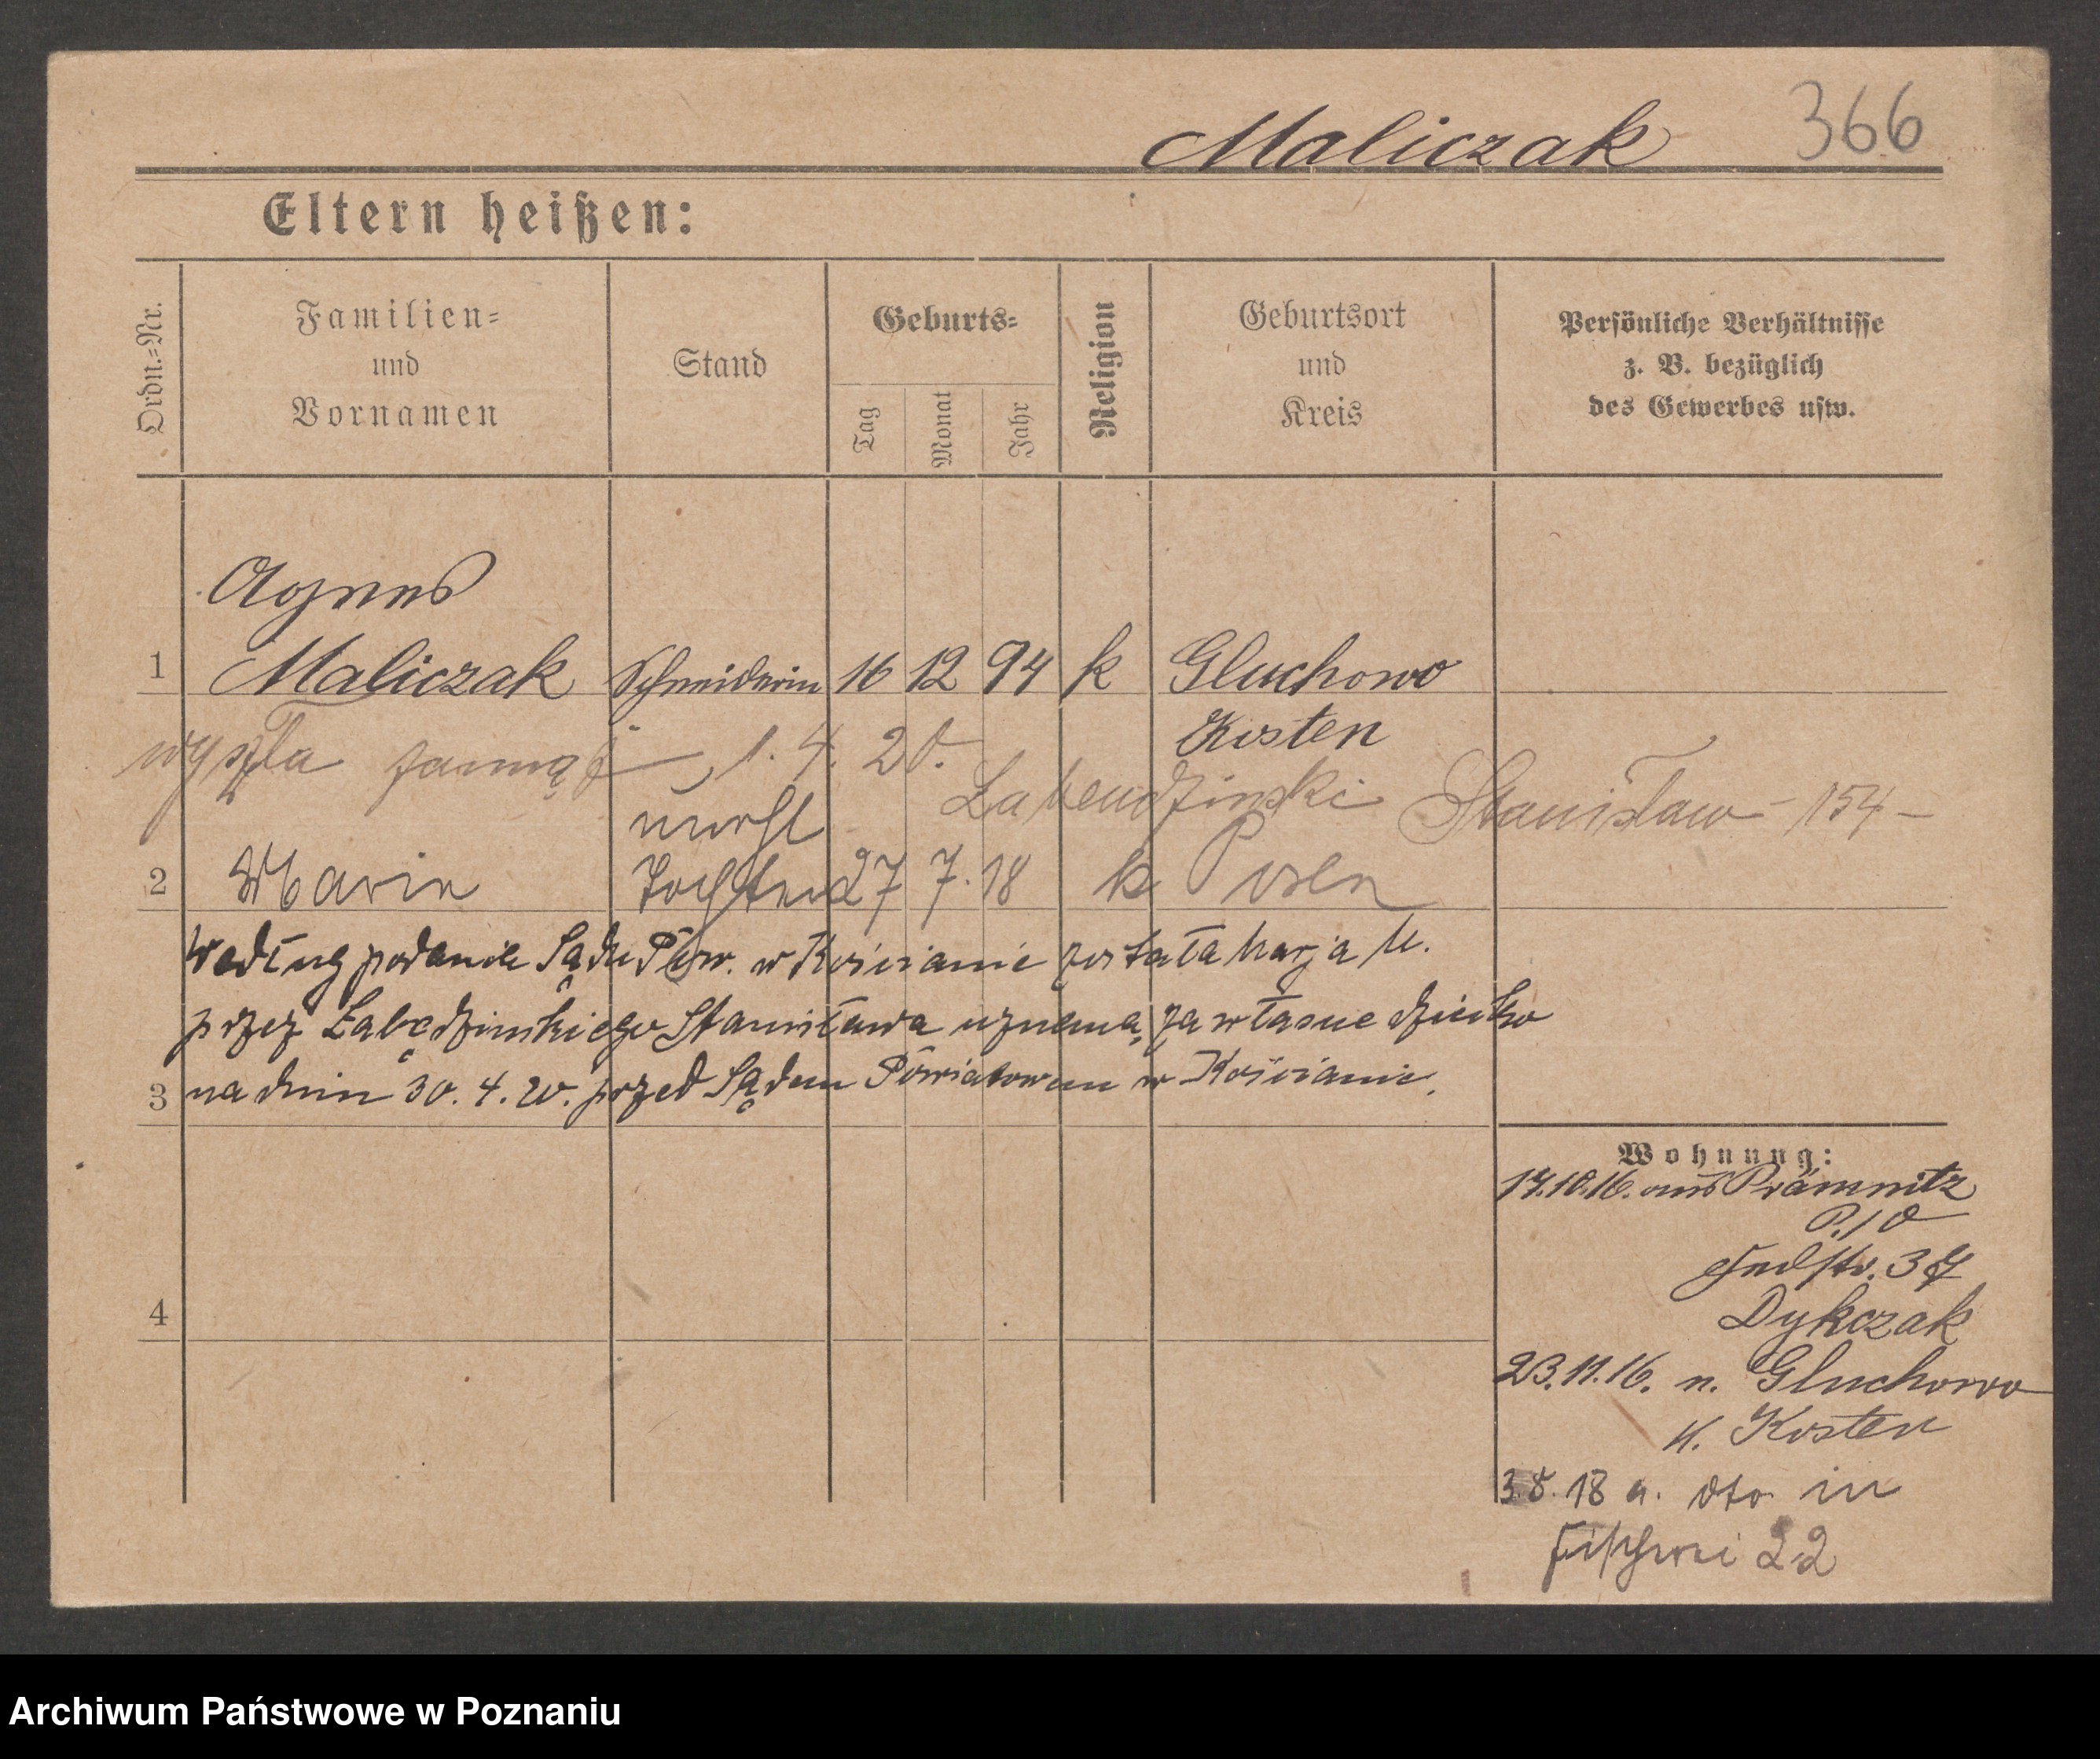 Maliczak 366
Eltern heißen:
Ordn.=Nr.
Familien=
und
Vornamen
Stand
Geburts=
Tag
Monat
Jahr
Religion
Geburtsort
und
Kreis
Persönliche Verhältnisse
z. B. bezüglich
des Gewerbes usw.
Agnes
1 Maliczak Schneiderin 16 12 94 k Gluchowo
Kosten
wyszła zamąż 1. 4. 20.
Labendzinski Stanisław - 154 -
unehl
2 Maria Tochter 27 7. 18 k Posen
Według podania Sądu Pow. w Kościanie została Marja M.
przez Łabędzińskiego Stanisława uznana, za własne dziecko
3 na dniu 30. 4. 20. przed Sądem Powiatowem w Kościanie.
4
Wohnung:
17.10.16. aus Prämnitz
P. / O
str. 37
Dykczak
23.11.16. n. Gluchowo
K. Kosten
3.8.18 a. dto in
Fischerei 22
Archiwum Państwowe w Poznaniu